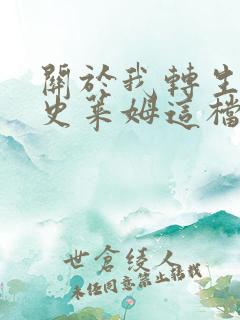 關於我轉生
史萊姆這檔
世倉綾人
未經同意禁止轉載